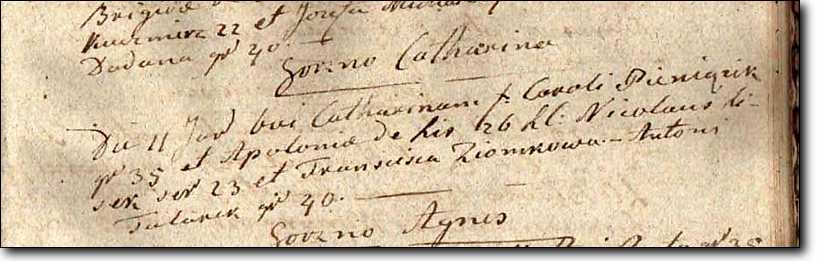 Brigidæ
Kazimira 22 et Josepha
Dadana gr 40.
Gorzno Catharina
Die 11 Jan bai Catharinam f. Caroli Pieniązik
gr 35 et Apoloniæ de his 26 hl: Nicolaus Li-
sek ser 23 et Francisca Ziomkowa. - Antoni
Tatarek gr 40.
Gorzno Agnes